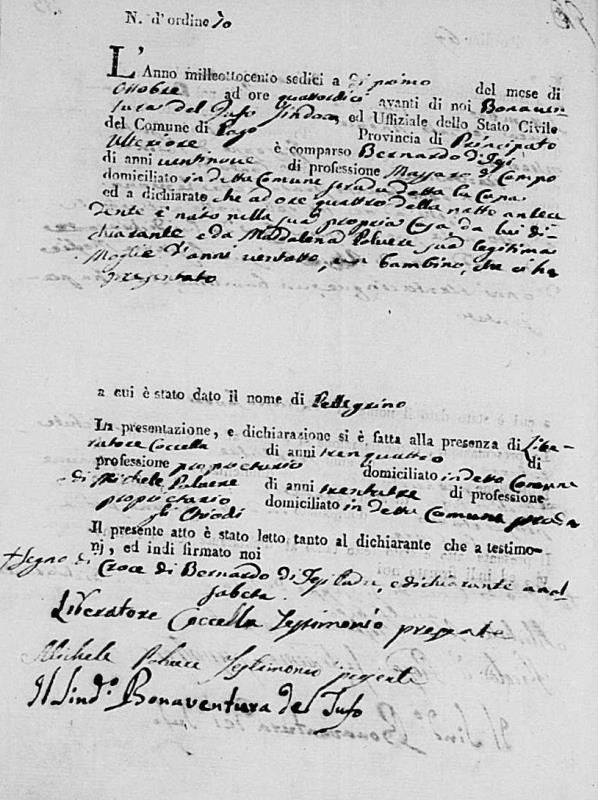 N. d'ordine 70
L'Anno milleottocento sedici a Di primo del mese di
Ottobre ad ore quattordici avanti di noi Bonaven-
tura del Tufo Sindaco, ed Uffiziale dello Stato Civile
del Comune di Lago Provincia di Principato
Ulteriore è comparso Bernardo di
di anni ventinove di professione Massaro di Campo
domiciliato in detta Comune strada detta la Capa
ed a dichiarato che ad ore quattro della notte antece
dente è nato nella sua propria Casa da lui di-
chiarante e da Maddalena Polvere sua legitima
Moglie d'anni ventotto, un bambino, che ci ha
presentato
a cui è stato dato il nome di Pellegrino
La presentazione, e dichiarazione si è fatta alla presenza di Libe-
ratore Coccella di anni trenquattro di
professione proprietario domiciliato in detta Comune
di Michele Polvere di anni trentatre di professione
proprietario domiciliato in detta Comune
gli Chiodi
Il presente atto è stato letto tanto al dichiarante che a testimo-
nj, ed indi firmato noi
+ Segno di Croce di Bernardo di Padre, e dichiarante anal-
fabeta
Liberatore Coccella Testimonio presente
Michele Polvere Testimonio presente
Il Sind.º Bonaventura del Tufo